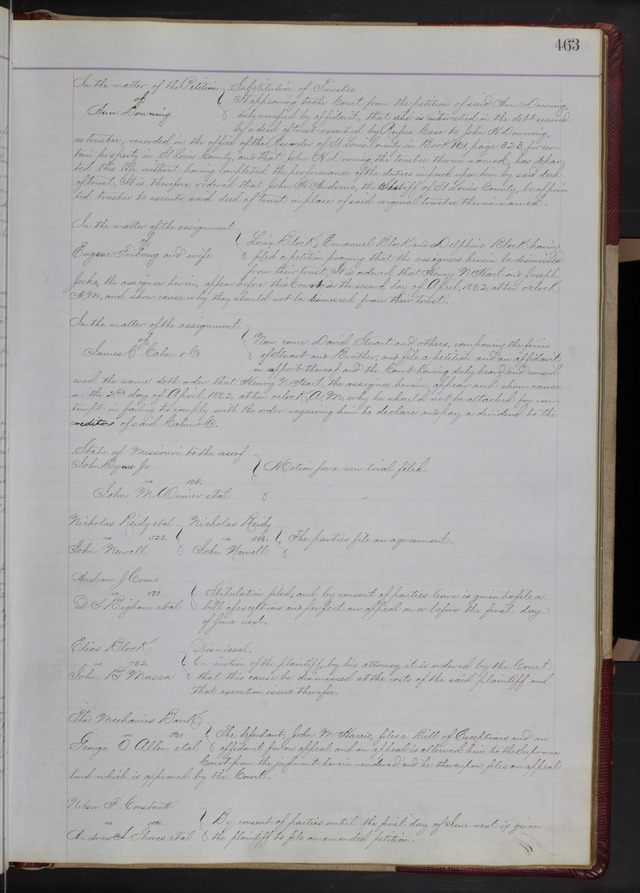 463
In the matter of the Petition } Substitution of Trustee.
of It appearing to the Court from the petition of said Ann Downing,
Ann Downing duly verified by affidavit, that she is interested in the debt secured
by a deed of trust executed by Rufus Case to John H Downing,
as trustee, recorded in the office of the Recorder of St Louis County in Book 161, page 523, for cer-
tain property in St Louis County, and that John H Downing the trustee therein named, has depar-
ted this life without having completed the performance of the duties imposed upon him by said deed
of trust, It is therefore ordered that John H Andrews, the Sheriff of St Louis County, be appoin
ted trustee to execute said deed of trust in place of said original trustee therein named.
In the matter of the assignment
of } Louis Block, Emanuel Block and Delphine Block having
Eugene and wife filed a petition praying that the assignees herein be dismissed
from their trust, It is ordered that Henry N Hart and Joseph
the assignees herein, appear before this Court on the second day of April, 1862, at ten o'clock
A.M. and show cause why they should not be dismissed from their trust.
In the matter of the assignment
of } Now come David Stuart and others, composing the firm
James C & Co of Stuart and Brother, and file a petition and an affidavit,
in support thereof, and the Court having duly heard and consid
ered the same doth order that Henry N Hart, the assignee herein, appear and show cause
on the 2nd day of April 1862, at ten o'clock, A.M. why he should not be attached for con-
tempt in failing to comply with the order requiring him to declare and pay a dividend to the
creditors of said & Co.
State of Missouri to the use of
John Byrne Jr } Motion for a new trial filed.
vs
John M et al
Nicholas Reidy et al } Nicholas Reidy
vs 522 vs } The parties file an agreement.
John Newell John Newell
Andrew J Coons
vs } Stipulation filed, and by consent of parties leave is given to file a
D. Bigham et al bill of exceptions and perfect an appeal on or before the first day
of June next.
Elias Block Dismissal.
vs 762 } On motion of the plaintiff, by his attorney, it is ordered by the Court
John B Massa that this cause be dismissed at the costs of the said plaintiff and
that execution issue therefor.
The Mechanics Bank
vs } The defendant, John M Harris, files a Bill of Exceptions and an
George O Allen et al affidavit for an appeal and an appeal is allowed him to the Supreme
Court from the judgment herein rendered, and he thereupon files an appeal
bond which is approved by the Court.
Nelson F Constant
vs } By consent of parties until the first day of June next is given
Andrew A Shores et al the plaintiff to file an amended petition.